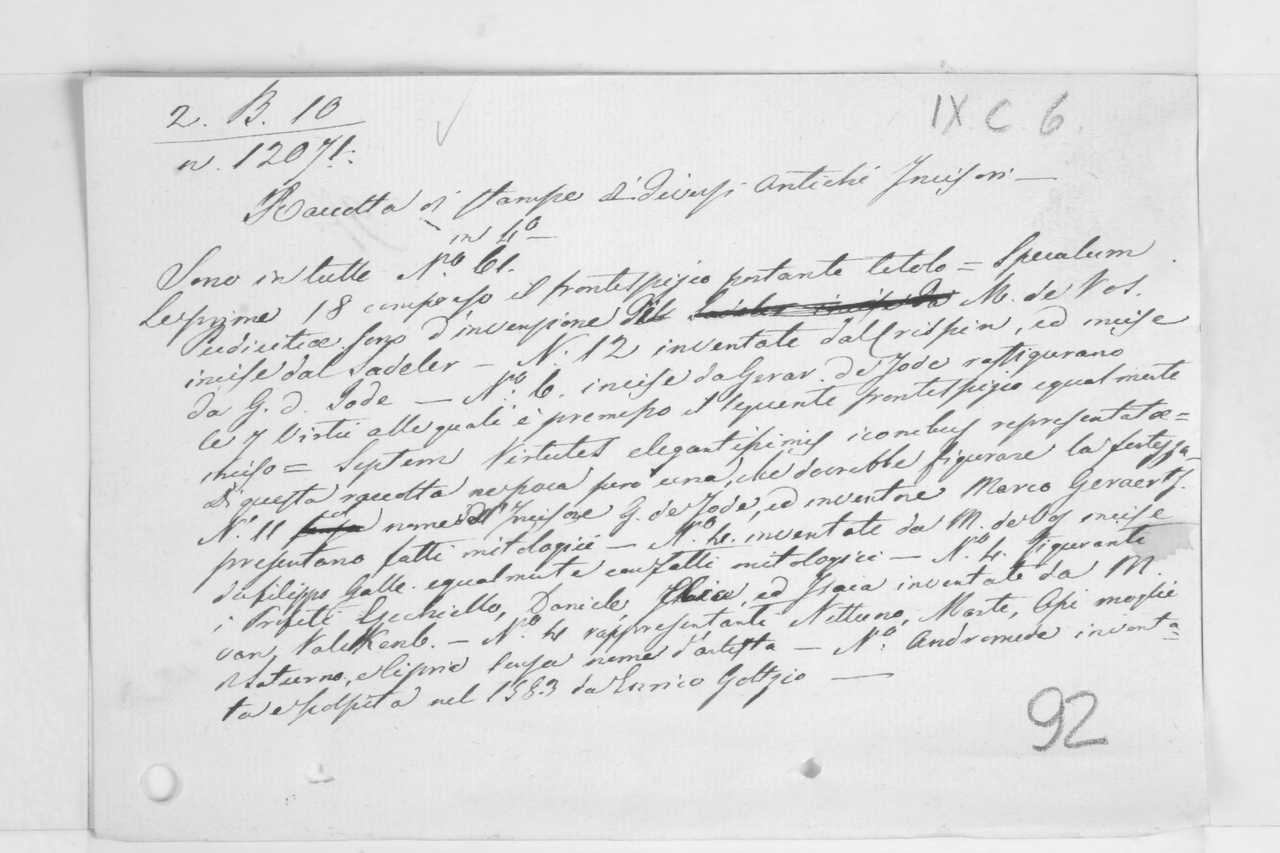 2. B. 10
IX. C. 6.
n. 12071.
Raccolta di Stampe di diversi antichi Incisori —
in 4º
Sono in tutte Nº 61.
Le prime 18 compreso il frontespizio portante titolo = Speculum
Pudicitiæ sono d'invenzione di M. de Vos.
incise dal Sadeler — N. 12 inventate dal Crispin, ed incise
da G. d. Jode — Nº 6. incise da Gerar. de Jode raffigurano
le 7 Virtù alle quali è premesso il seguente frontespizio egualmente
inciso = Septem Virtutes elegantissimis iconibus representatæ =
Di questa raccolta ne poca però una, che dovrebbe figurare la fortezza —
N. 11 nome dell'Incisore G. de Jode, ed inventore Marco Geraerts.
presentano fatti mitologici — Nº 4. inventate da M. de Vos incise
da Filippo Galle egualmente con fatti mitologici — Nº 4. figuranti
i Profeti Ezechiello, Daniele, ed Isaia inventate da M.
van Valckenb. — Nº 4 rappresentanti Nettuno, Marte, Opi moglie
di Saturno, e senza nome d'artista — Nº. Andromeda inventa=
ta e scolpita nel 1583 da Enrico Goltzio —
92